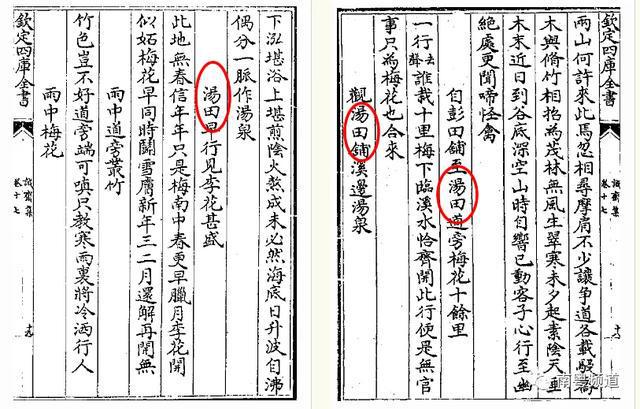 欽定四庫全書
誠齋集
卷十七
兩山何許來此焉忽相尋摩肩不少讓爭道各載駸喬
木與脩竹相招為茂林無風生翠寒未夕起素陰天垂
木末近日到谷底深空山時自響已動客子心行至幽
絕處更聞啼怪禽
自彭田鋪至湯田道旁梅花十餘里
一行去聲誰栽十里梅下臨溪水恰齊開此行便是無官
事只為梅花也合來
觀湯田鋪溪邊湯泉
下泓堪浴上堪煎陰火熬成未必然海底日升波自沸
偶分一脈作湯泉
湯田早行見李花甚盛
此地無春信年年只是梅南中春更早臘月李花開
似妬梅花早同時鬬雪膚新年三二月還解再開無
雨中道旁叢竹
竹色豈不好道旁端可嗔只教寒雨裏將冷洒行人
雨中梅花
欽定四庫全書
誠齋集
卷十七
南粤频道